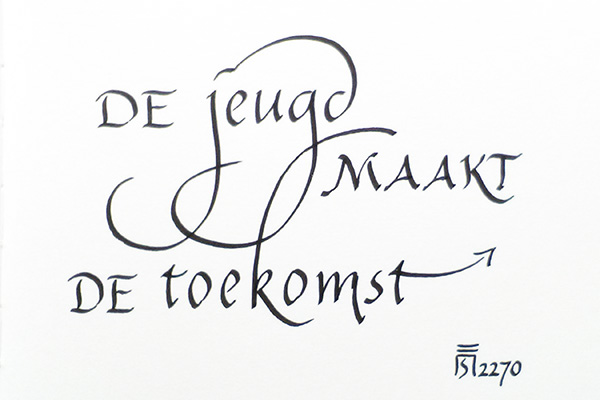 DE jeugd
MAAKT
DE toekomst
2270